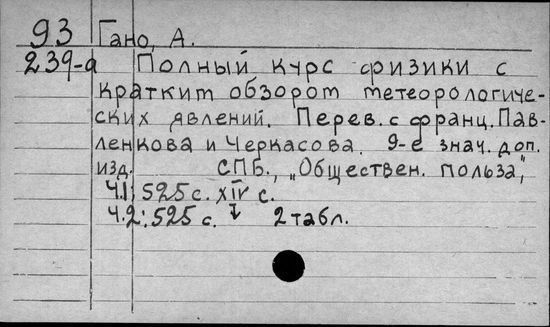 93 Гано, А.
239-а Полный курс физики с
кратким обзором метеорологиче-
ских явлений. Перев. с франц. Пав-
ленкова и Черкасова. 9-е знач. доп.
изд. СПБ., „Обществен. польза",
Ч.1: 525 с. XIV с.
Ч.2: 525 с. 2 табл.